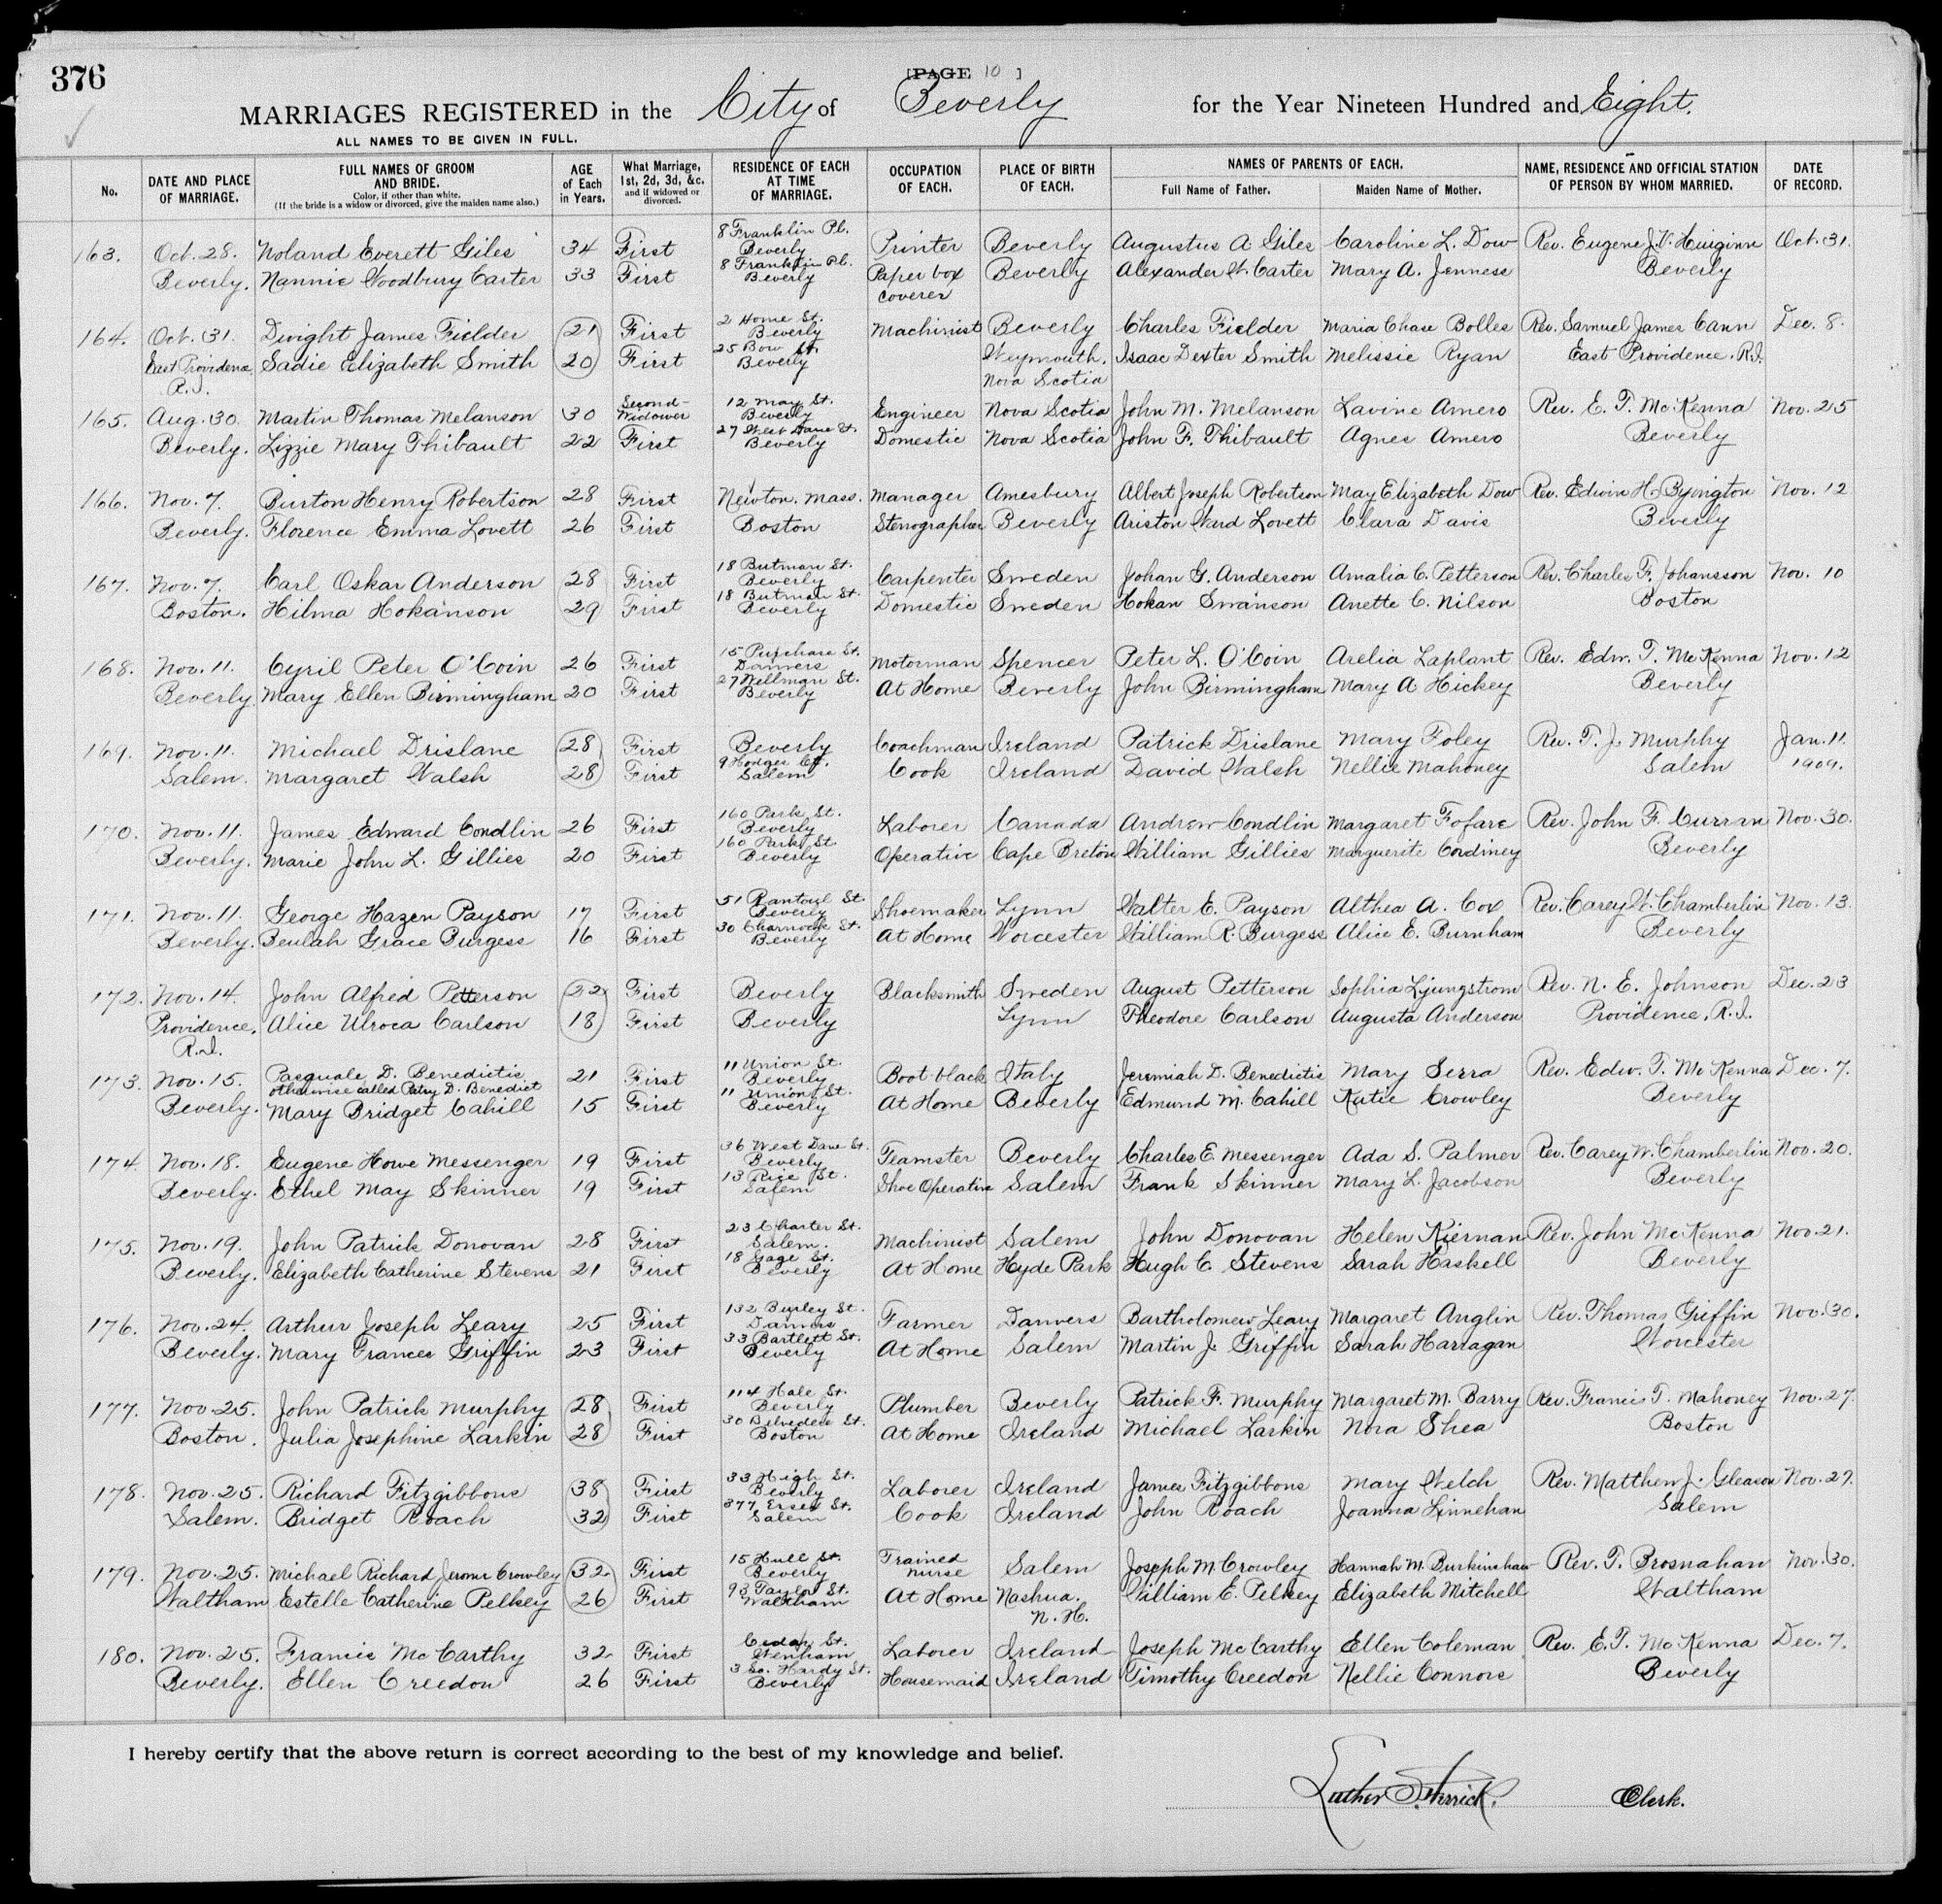 376
[PAGE 10 ]
MARRIAGES REGISTERED in the City of Beverly for the Year Nineteen Hundred and Eight.
ALL NAMES TO BE GIVEN IN FULL.
No. DATE AND PLACE OF MARRIAGE. FULL NAMES OF GROOM AND BRIDE. Color, if other than white. (If the bride is a widow or divorced, give the maiden name also.) AGE of Each in Years. What Marriage, 1st, 2d, 3d, &c. and if widowed or divorced. RESIDENCE OF EACH AT TIME OF MARRIAGE. OCCUPATION OF EACH. PLACE OF BIRTH OF EACH. NAMES OF PARENTS OF EACH. Full Name of Father. Maiden Name of Mother. NAME, RESIDENCE AND OFFICIAL STATION OF PERSON BY WHOM MARRIED. DATE OF RECORD.
163. Oct. 28. Noland Everett Giles 34 First 8 Franklin Pl. Beverly Printer Beverly Augustus A Giles Caroline L. Dow Rev. Eugene J.V. Huiginn Oct. 31.
Beverly. Nannie Woodbury Carter 33 First 8 Franklin Pl. Beverly Paper box coverer Beverly Alexander W. Carter Mary A. Jenness Beverly
164. Oct. 31. Dwight James Fielder 21 First 2 Home St. Beverly Machinist Beverly Charles Fielder Maria Chase Bolles Rev. Samuel James Cann Dec. 8.
East Providence R.I. Sadie Elizabeth Smith 20 First 25 Bow St. Beverly Weymouth, Nova Scotia Isaac Dexter Smith Melissie Ryan East Providence. R.I.
165. Aug. 30. Martin Thomas Melanson 30 Second- Widower 12 May St. Beverly Engineer Nova Scotia John M. Melanson Lavine Amero Rev. E. T. McKenna Nov. 25
Beverly. Lizzie Mary Thibault 22 First 27 West Dane St. Beverly Domestic Nova Scotia John F. Thibault Agnes Amero Beverly
166. Nov. 7. Burton Henry Robertson 28 First Newton. Mass. Manager Amesbury Albert Joseph Robertson May Elizabeth Dow Rev. Edwin H. Byington Nov. 12
Beverly. Florence Emma Lovett 26 First Boston Stenographer Beverly Ariston Ward Lovett Clara Davis Beverly
167. Nov. 7. Carl Oskar Anderson 28 First 18 Butman St. Beverly Carpenter Sweden Johan G. Anderson Amalia C. Petterson Rev. Charles F. Johansson Nov. 10
Boston. Hilma Hokanson 29 First 18 Butman St. Beverly Domestic Sweden Hokan Swanson Anette C. Nilson Boston
168. Nov. 11. Cyril Peter O'Coin 26 First 15 Purchase St. Danvers Motorman Spencer Peter L. O'Coin Arelia Laplant Rev. Edw. T. McKenna Nov. 12
Beverly Mary Ellen Birmingham 20 First 27 Wellman St. Beverly At Home Beverly John Birmingham Mary A Hickey Beverly
169. Nov. 11. Michael Drislane 28 First Beverly Coachman Ireland Patrick Drislane Mary Foley Rev. T. J. Murphy Jan. 11.
Salem. Margaret Walsh 28 First 9 Hodges Ct. Salem Cook Ireland David Walsh Nellie Mahoney Salem 1909.
170. Nov. 11. James Edward Condlin 26 First 160 Park St. Beverly Laborer Canada Andrew Condlin Margaret Fofare Rev. John F. Curran Nov. 30.
Beverly. Marie John L. Gillies 20 First 160 Park St. Beverly Operative Cape Breton William Gillies Marguerite Beverly
171. Nov. 11. George Hazen Payson 17 First 51 Rantoul St. Beverly Shoemaker Lynn Walter E. Payson Althea A. Cox Rev. Carey W. Chamberlin Nov. 13.
Beverly. Beulah Grace Burgess 16 First 30 Charnock St. Beverly At Home Worcester William R. Burgess Alice E. Burnham Beverly
172. Nov. 14. John Alfred Petterson 22 First Beverly Blacksmith Sweden August Petterson Sophia Ljungstrom Rev. N. E. Johnson Dec. 23
Providence, R.I. Alice Ulroca Carlson 18 First Beverly Lynn Theodore Carlson Augusta Anderson Providence, R.I.
173. Nov. 15. Pasquale D. Benedictis otherwise called Patsy D. Benedict 21 First 11 Union St. Beverly Boot black Italy Jeremiah D. Benedictis Mary Serra Rev. Edw. T. McKenna Dec. 7.
Beverly. Mary Bridget Cahill 15 First 11 Union St. Beverly At Home Beverly Edmund M. Cahill Katie Crowley Beverly
174. Nov. 18. Eugene Howe Messenger 19 First 36 West Dane St. Beverly Teamster Beverly Charles E. Messenger Ada S. Palmer Rev. Carey W. Chamberlin Nov. 20.
Beverly. Ethel May Skinner 19 First 13 Rice St. Salem Shoe Operative Salem Frank Skinner Mary L. Jacobson Beverly
175. Nov. 19. John Patrick Donovan 28 First 23 Charter St. Salem. Machinist Salem John Donovan Helen Kiernan Rev. John McKenna Nov. 21.
Beverly. Elizabeth Catherine Stevens 21 First 18 Gage St. Beverly At Home Hyde Park Hugh C. Stevens Sarah Haskell Beverly
176. Nov. 24. Arthur Joseph Leary 25 First 132 Burley St. Danvers Farmer Danvers Bartholomew Leary Margaret Anglin Rev. Thomas Griffin Nov. 30.
Beverly. Mary Frances Griffin 23 First 33 Bartlett St. Beverly At Home Salem Martin J. Griffin Sarah Harragan Worcester
177. Nov. 25. John Patrick Murphy 28 First 114 Hale St. Beverly Plumber Beverly Patrick F. Murphy Margaret M. Barry Rev. Francis T. Mahoney Nov. 27.
Boston. Julia Josephine Larkin 28 First 30 Belvedere St. Boston At Home Ireland Michael Larkin Nora Shea Boston
178. Nov. 25. Richard Fitzgibbons 38 First 33 High St. Beverly Laborer Ireland James Fitzgibbons Mary Welch Rev. Matthew J. Gleason Nov. 27.
Salem. Bridget Roach 32 First 377 Essex St. Salem Cook Ireland John Roach Joanna Linnehan Salem
179. Nov. 25. Michael Richard Jerome Crowley 32 First 15 Hull St. Beverly Trained nurse Salem Joseph M. Crowley Hannah M. Burkinshaw Rev. T. Brosnahan Nov. 30.
Waltham Estelle Catherine Pelkey 26 First 93 Taylor St. Waltham At Home Nashua. N.H. William E. Pelkey Elizabeth Mitchell Waltham
180. Nov. 25. Francis McCarthy 32 First Cedar St. Wenham Laborer Ireland Joseph McCarthy Ellen Coleman Rev. E. T. McKenna Dec. 7.
Beverly. Ellen Creedon 26 First 3 So. Hardy St. Beverly Housemaid Ireland Timothy Creedon Nellie Connors Beverly
I hereby certify that the above return is correct according to the best of my knowledge and belief.
Luther S. Herrick. Clerk.